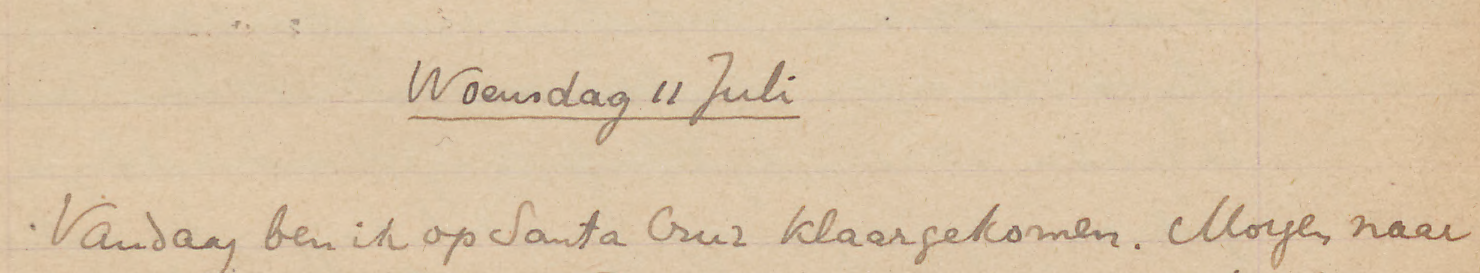 Woensdag 11 Juli
Vandaag ben ik op Santa Cruz klaargekomen. Morgen naar